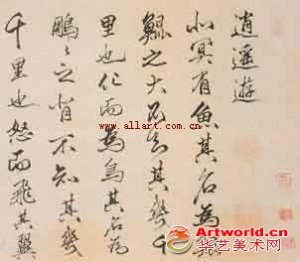 逍遙遊
北冥有魚其名為鯤
鯤之大不知其幾千
里也化而為鳥其名為
鵬〻之背不知其幾
千里也怒而飛其翼
www.allart.com.cn
Artworld.cn
华艺美术网